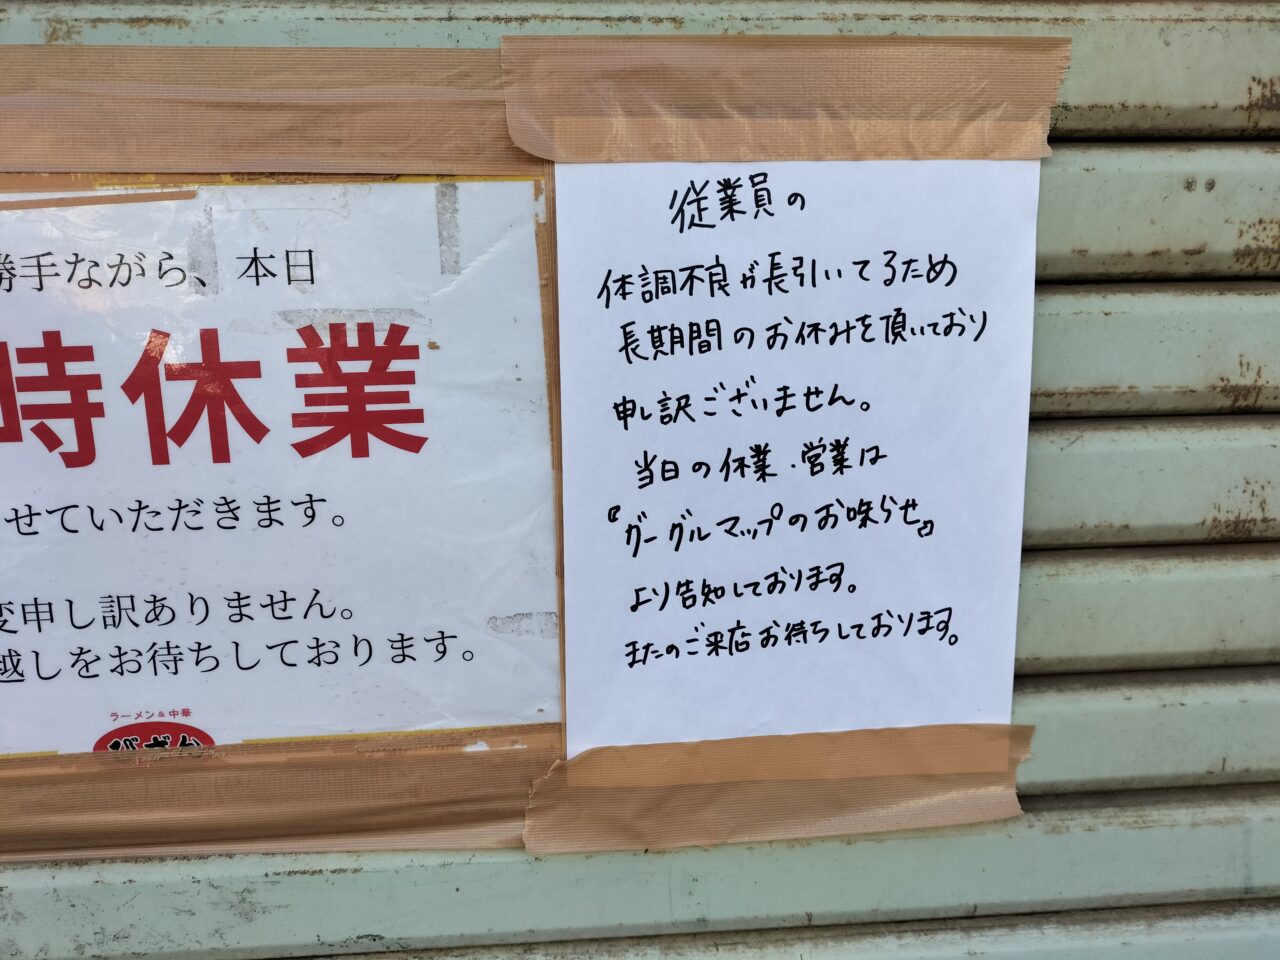 勝手ながら、本日
時休業
せていただきます。
変申し訳ありません。
越しをお待ちしております。
ラーメン&中華
従業員の
体調不良が長引いてるため
長期間のお休みを頂いており
申し訳ございません。
当日の休業・営業は
『グーグルマップのお知らせ』
より告知しております。
またのご来店お待ちしております。